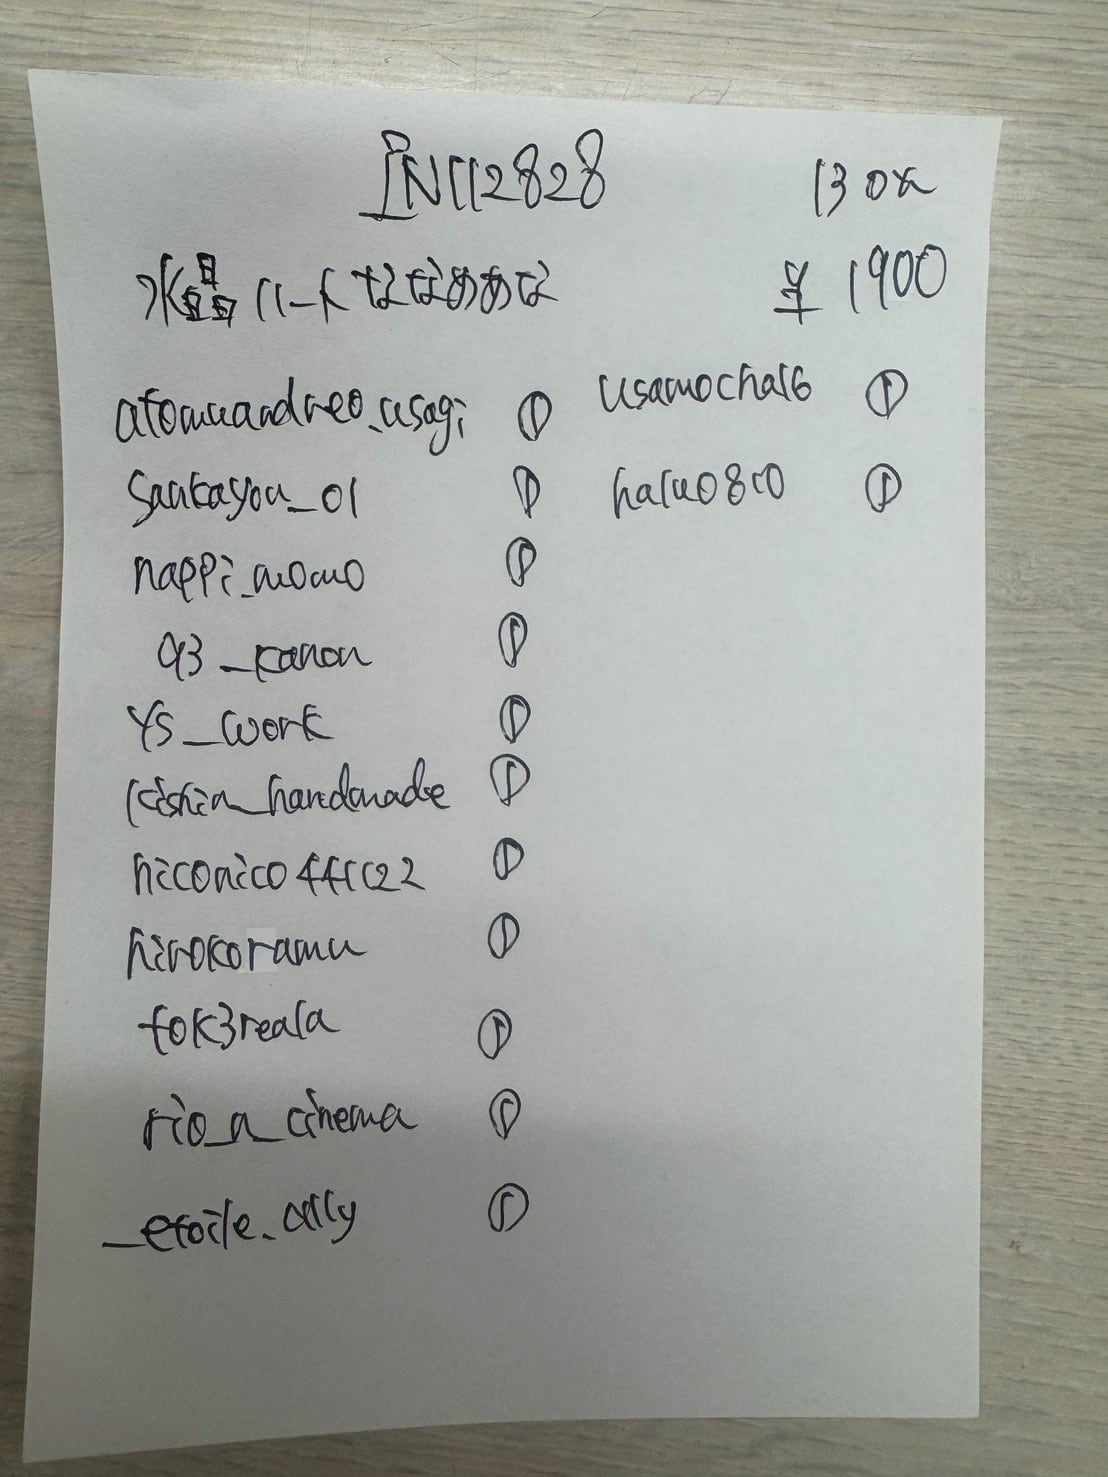 INC112828 130x
水晶ハート ななめあな ¥1900
atomuandreo_usagi ①
sankayou_01 ①
nappi_momo ①
93_kanon ①
YS_work ①
rishin_handmade ①
niconico441122 ①
hirokoramu ①
tok3reala ①
rio_n_cinema ①
_etoile.ally ①
usamocha16 ①
haluo810 ①